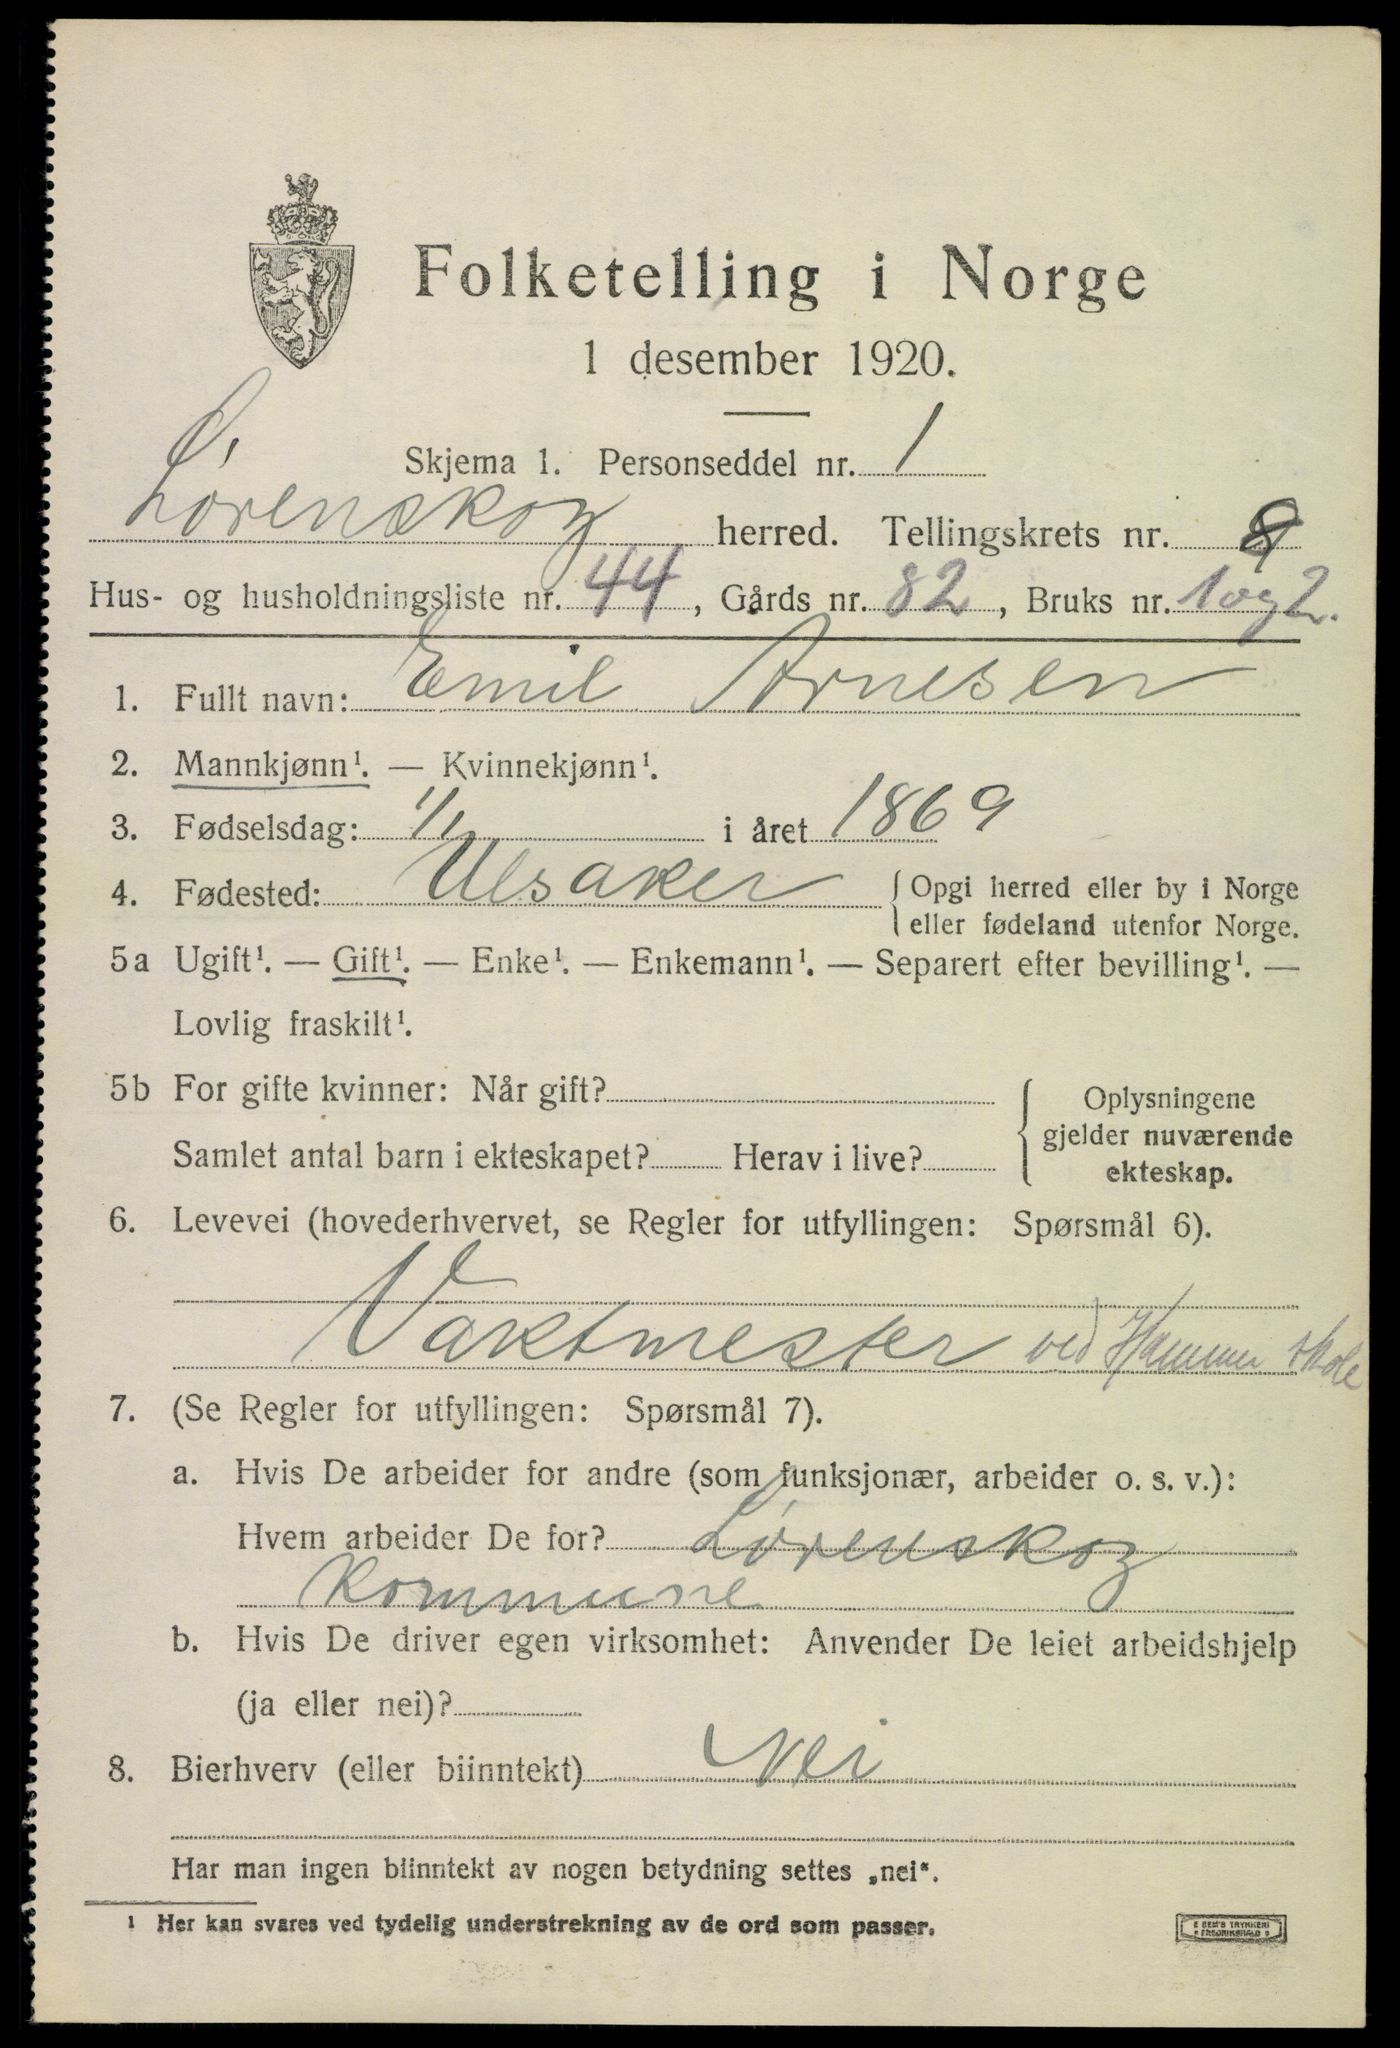 Folketelling i Norge
1 desember 1920.
Skjema 1. Personseddel nr. 1
Lørenskog herred. Tellingskrets nr.
Hus- og husholdningsliste nr. 44, Gårds nr. 82, Bruks nr. 1 og 2.
1. Fullt navn: Emil Arnesen
2. Mannkjønn¹. — Kvinnekjønn¹.
3. Fødselsdag: 1/1 i året 1869
4. Fødested: Ulsaker { Opgi herred eller by i Norge
eller fødeland utenfor Norge.
5a Ugift¹. — Gift¹. — Enke¹. — Enkemann¹. — Separert efter bevilling¹. —
Lovlig fraskilt¹.
5b For gifte kvinner: Når gift? { Oplysningene
gjelder nuværende
Samlet antal barn i ekteskapet? Herav i live?
ekteskap.
6. Levevei (hovederhvervet, se Regler for utfyllingen: Spørsmål 6).
Vaktmester ved Hammer skole
7. (Se Regler for utfyllingen: Spørsmål 7).
a. Hvis De arbeider for andre (som funksjonær, arbeider o. s. v.):
Hvem arbeider De for? Lørenskog
Kommune
b. Hvis De driver egen virksomhet: Anvender De leiet arbeidshjelp
(ja eller nei)?
8. Bierhverv (eller biinntekt) Nei
Har man ingen biinntekt av nogen betydning settes „nei“.
¹ Her kan svares ved tydelig understrekning av de ord som passer.
E SEM'S TRYKKERI
FREDRIKSHALD